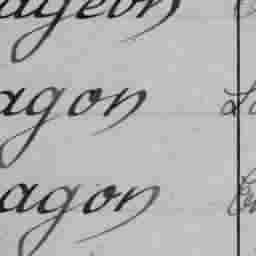 ageon
agon
agon